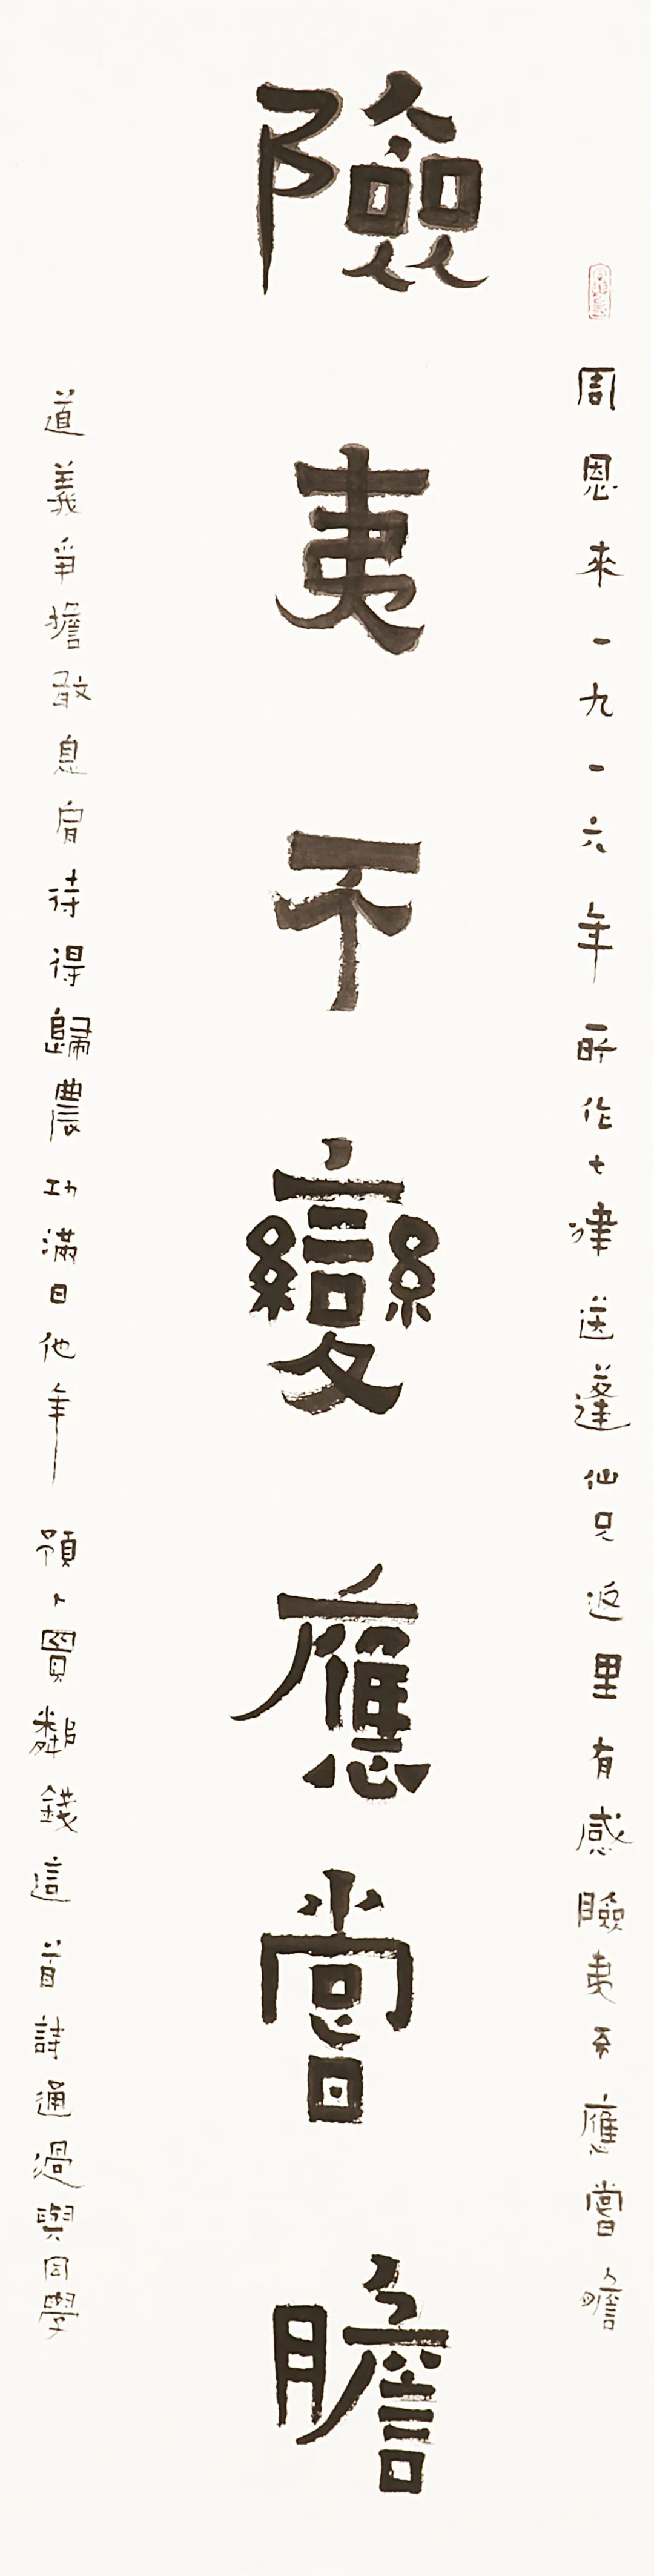 周恩來一九一六年所作七律送蓬仙兄返里有感險夷不應嘗膽
險夷不變應嘗膽
道義爭擔敢息肩待得歸農功滿日他年預卜買鄰錢這首詩通過與同學